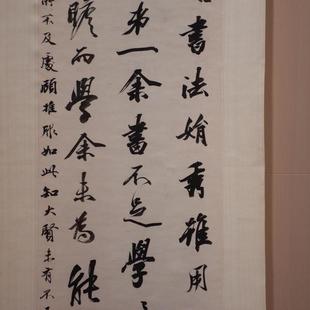 書法娟秀雄用
弟一余書不足學
瞻而學余未為能
不及處願推服如此知大賢未有不